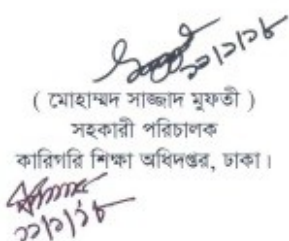 ২১/১/১৮
( মোহাম্মদ সাজ্জাদ মুফতী )
সহকারী পরিচালক
কারিগরি শিক্ষা অধিদপ্তর, ঢাকা।
২১/১/১৮